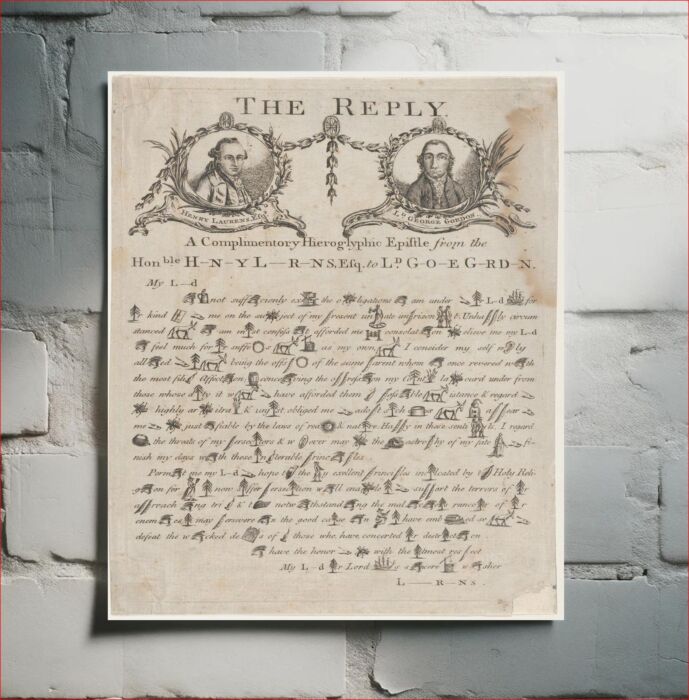 THE REPLY
HENRY LAURENS, Esqr.
Ld. GEORGE GORDON.
A Complimentory Hieroglyphic Epistle from the
Honble H-N-Y L-R-NS, Esq. to LD. G-O-E G-RD-N.
My L-d
not suff cienly ex the o ligations am under L-d for
r kind me on the su ject of my present un ate im rison t. Unha ly circum
stanced am m st confess t afforded me consolat on elieve me my L-d
feel much for suffe s as my own, I consider my self n ly
all ed being the offs of the same arent whom once revered w th
the most fili Affect on concer ing the o ress on my Co la ourd under from
those whose ty it w have afforded them ss ble istance & regard
highly ar itra & un st obliged me ad t s ch s a ear
me just fiable by the laws of rea & nat re Ha y in these senti ts. I regard
the threats of my ersec ors & w over may the astro hy of my fate fi-
nish my days w th these in terable rinc les
Perm t me my L-d hope t the y exellent rinci les inc lcated by t Holy Reli
g on for now ffer ersec tion w ll ena le su ort the terrors of r
a roach ng tri & t notw thstand ng the mal rancor of r
enem es may ersevere n the good ca se n have emb ed so
defeat the w cked de s of those who have concerted r dest ct on
have the honor with the tmost res ect
My L-d r Lord
L-R-NS.